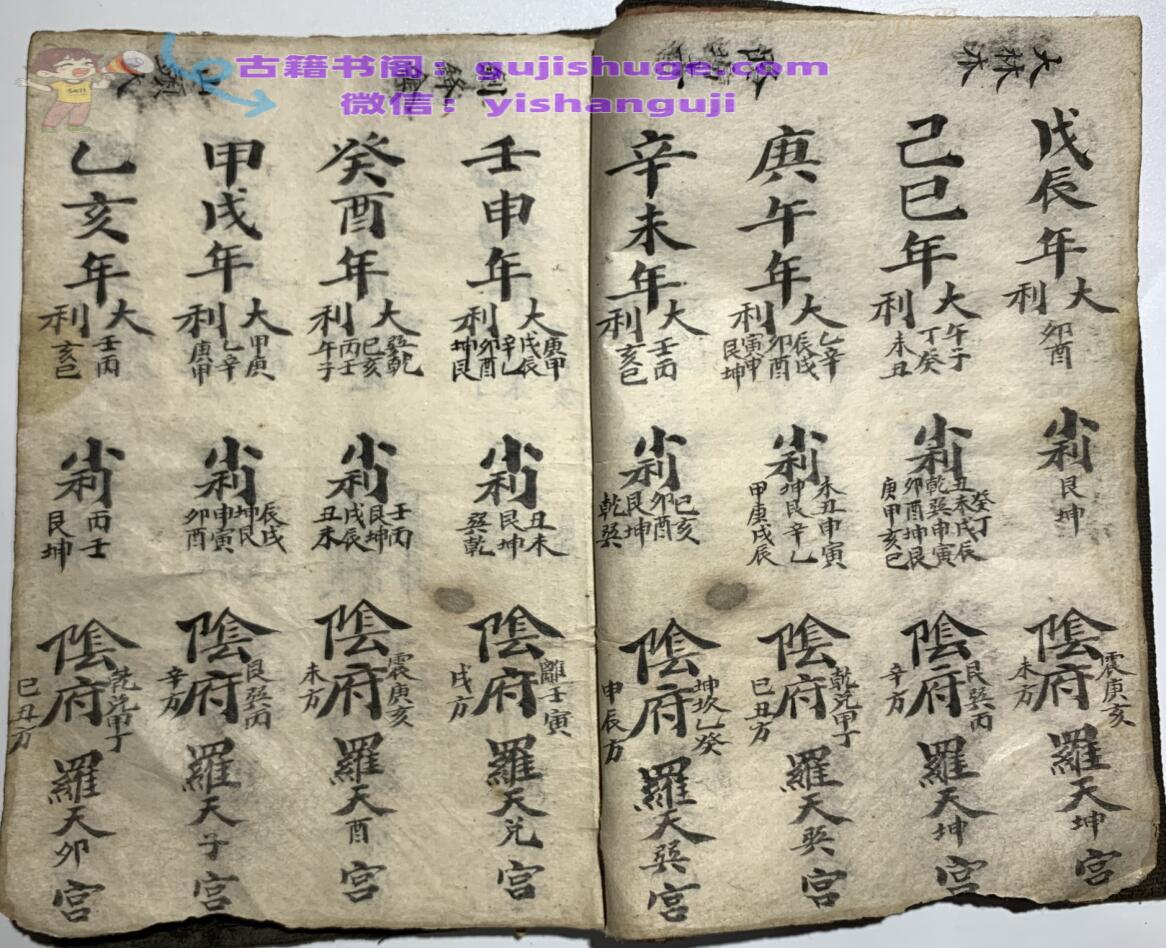 古籍书阁：gujishuge.com
微信：yishanguji
大林木
戊辰年
大利
卯酉
小利
艮坤
陰府
震庚亥
未方
羅天坤宮
己巳年
大利
午子
丁癸
未丑
小利
癸丁
丑未戌辰
乾巽申寅
卯酉坤艮
庚甲亥巳
陰府
艮巽丙
辛方
羅天坤宮
庚午年
大利
乙辛
辰戌
卯酉
寅申
艮坤
小利
未丑申寅
坤艮辛乙
甲庚戌辰
陰府
乾兌甲丁
巳丑方
羅天巽宮
辛未年
大利
壬丙
亥巳
小利
巳亥
卯酉
艮坤
乾巽
陰府
坤坎乙癸
申辰方
羅天巽宮
劍
鋒
金
壬申年
大利
庚甲
戊辰
辛乙
卯酉
坤艮
小利
丑未
艮坤
巽乾
陰府
離壬寅
戌方
羅天兌宮
癸酉年
大利
巽乾
巳亥
丙壬
午子
小利
壬丙
艮坤
戌辰
丑未
陰府
震庚亥
未方
羅天酉宮
山
頭
火
甲戌年
大利
甲庚
乙辛
庚甲
小利
辰戌
坤艮
申寅
卯酉
陰府
艮巽丙
辛方
羅天子宮
乙亥年
大利
壬丙
亥巳
小利
丙壬
艮坤
陰府
乾兌甲丁
巳丑方
羅天卯宮